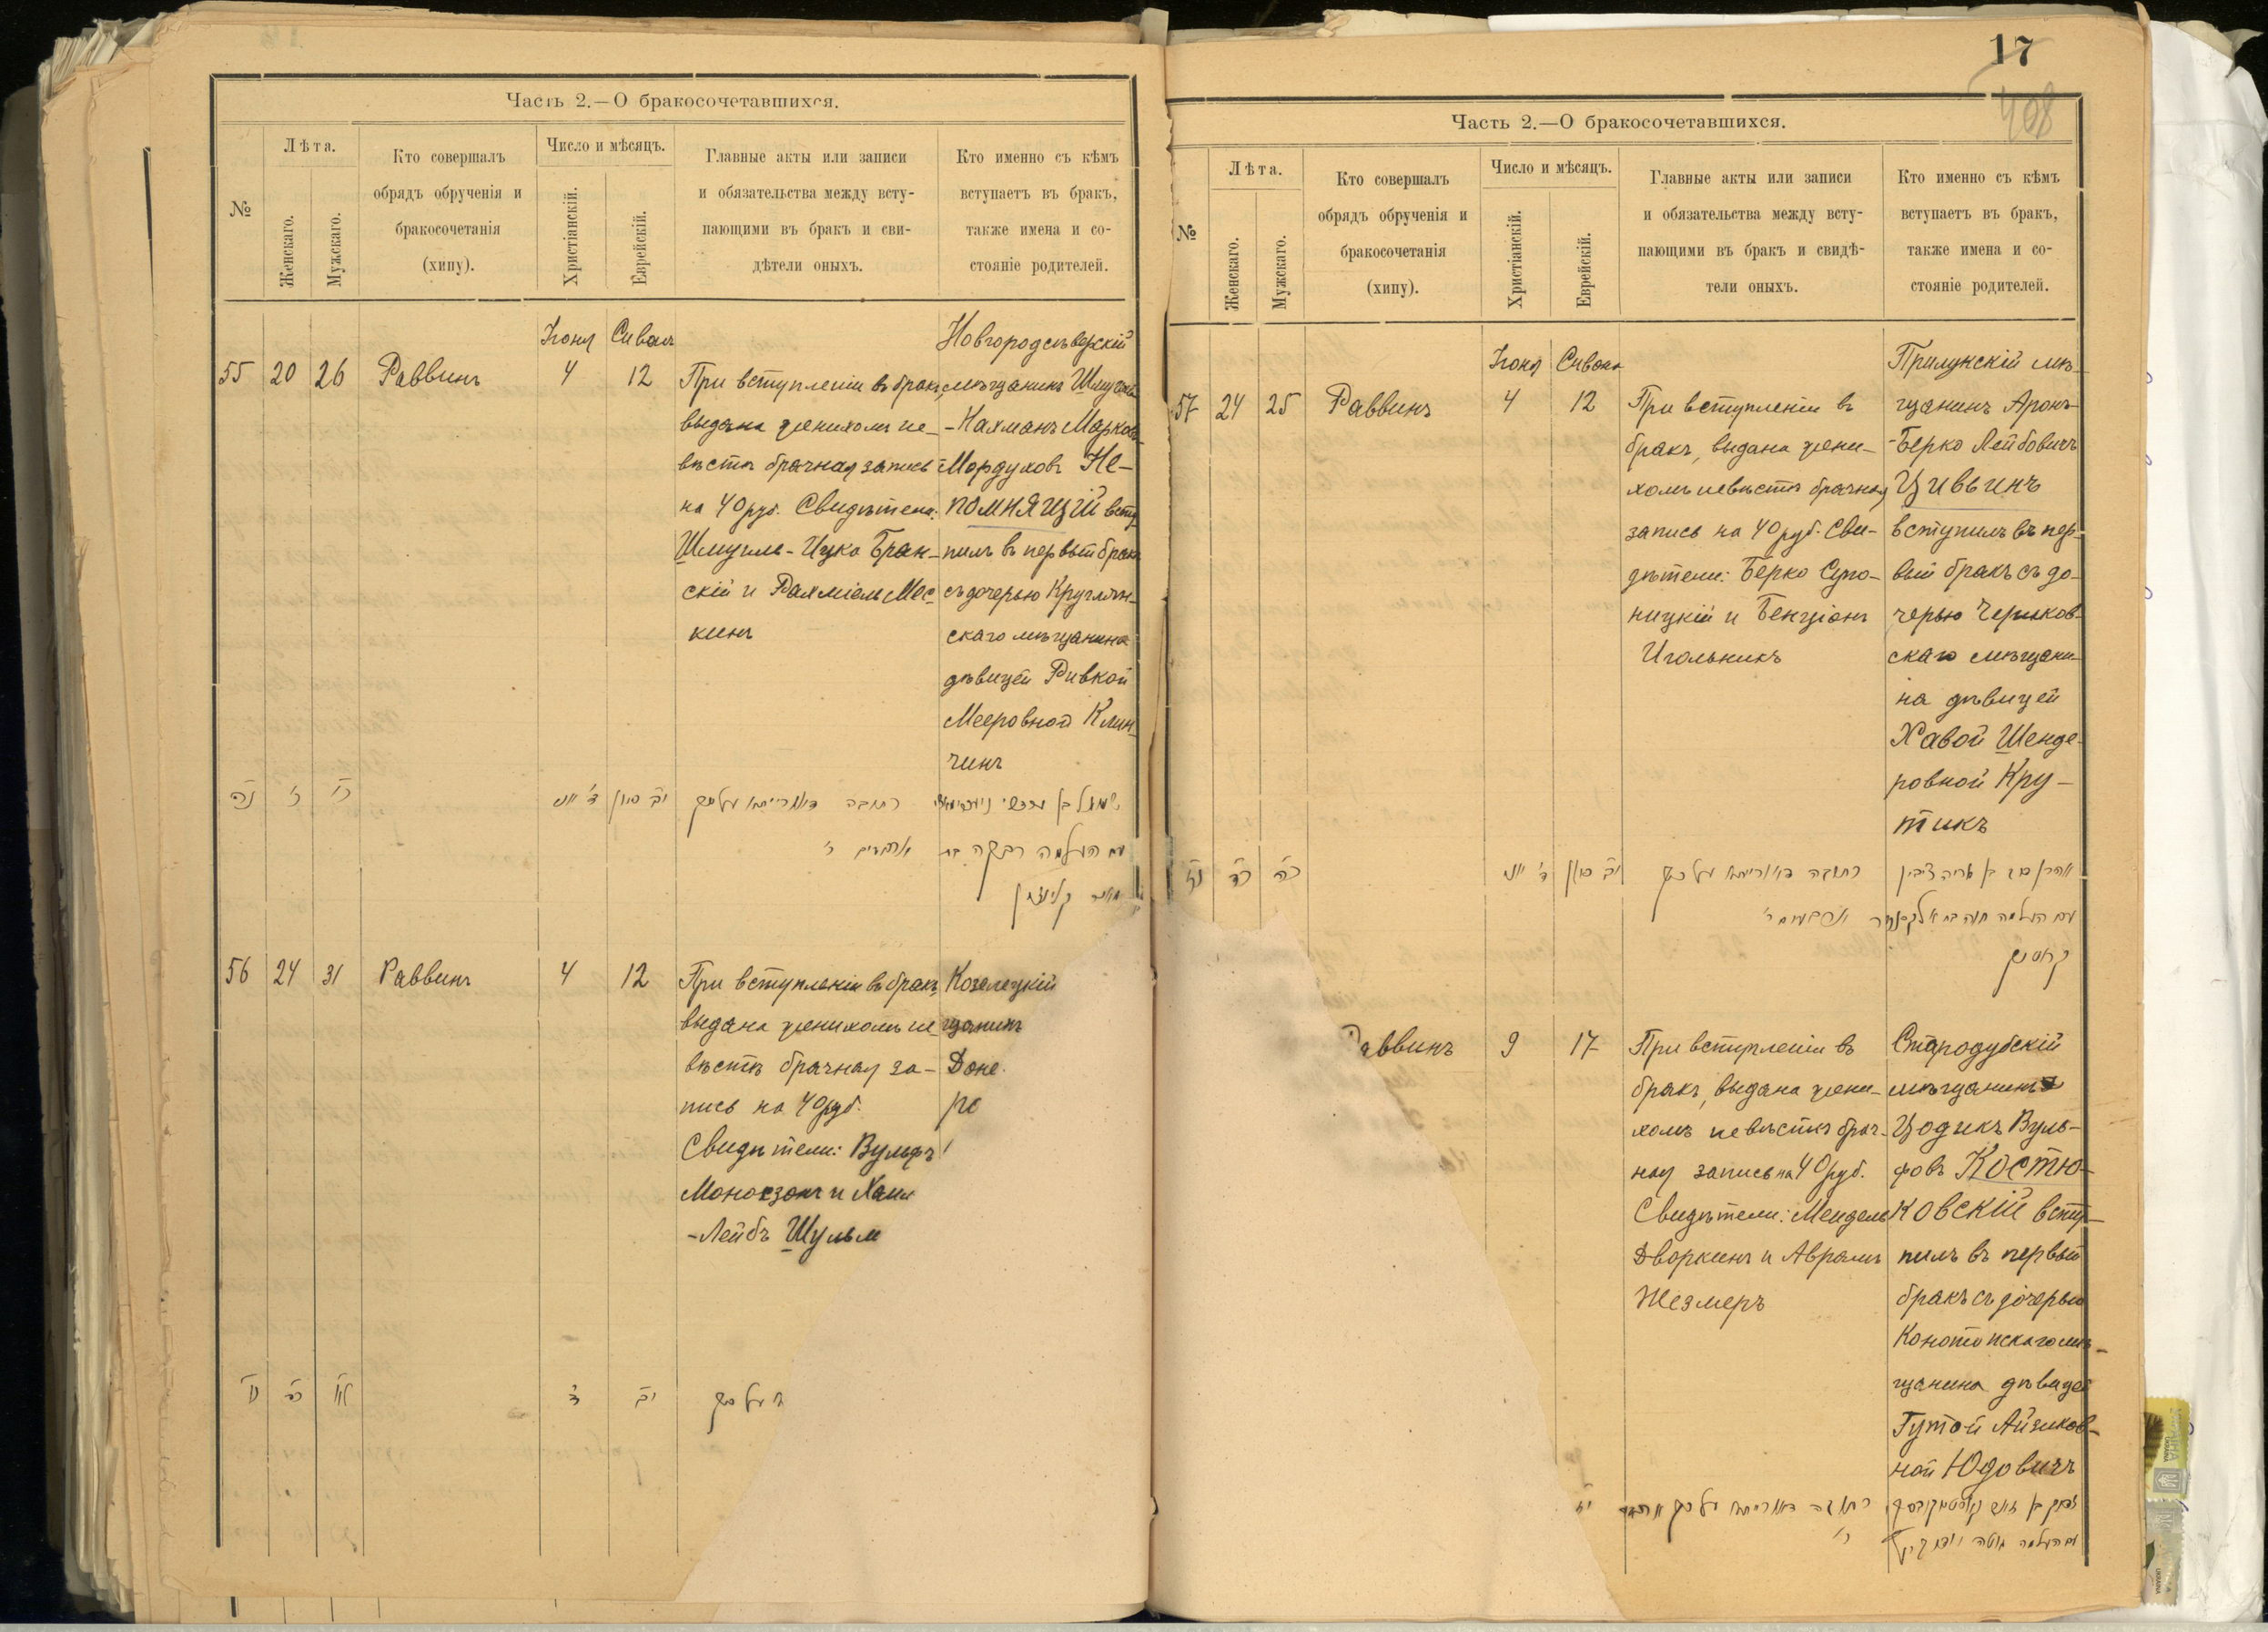 Часть 2.—О бракосочетавшихся.
№
Лѣта.
Женскаго.
Мужскаго.
Кто совершалъ
обрядъ обрученія и
бракосочетанія
(хипу).
Число и мѣсяцъ.
Христіанскій.
Еврейскій.
Главные акты или записи
и обязательства между всту-
пающими въ бракъ и сви-
дѣтели оныхъ.
Кто именно съ кѣмъ
вступаетъ въ бракъ,
также имена и со-
стояніе родителей.
Іюня
Сивона
55
20
26
Раввинъ
4
12
При вступленіи въ бракъ,
выдана женихомъ не-
вѣстѣ брачная запись
на 40 руб. Свидѣтели:
Шмуилъ-Ицко Бран-
скій и Рахміель Мес-
кинъ
Новгородсѣверскій
мѣщанинъ
-Нахманъ Марковъ
Мордуховъ Не-
помнящій всту
пилъ въ первый бракъ
съ дочерью Круглян-
скаго мѣщанина
дѣвицей Ривкой
Мееровной Клин-
чинъ
נה
כ
כו
יב סיון
כתובה דאורייתא על סך
עם העלמה רבקה בת
56
24
31
Раввинъ
4
12
При вступленіи въ бракъ,
выдана женихомъ не-
вѣстѣ брачная за-
пись на 40 руб.
Свидѣтели: Вульфъ
Моносзонъ и Хаим
-Лейбъ Шульм
Козелецкій
щанинъ
Доне
ро
נו
כד
לא
ד
יב
על סך
17
408
Часть 2.—О бракосочетавшихся.
№
Лѣта.
Женскаго.
Мужскаго.
Кто совершалъ
обрядъ обрученія и
бракосочетанія
(хипу).
Число и мѣсяцъ.
Христіанскій.
Еврейскій.
Главные акты или записи
и обязательства между всту-
пающими въ бракъ и свидѣ-
тели оныхъ.
Кто именно съ кѣмъ
вступаетъ въ бракъ,
также имена и со-
стояніе родителей.
Іюня
Сивона
57
24
25
Раввинъ
4
12
При вступленіи въ
бракъ, выдана жени-
хомъ невѣстѣ брачная
запись на 40 руб. Сви-
дѣтели: Берко Супо-
ницкій и Бенціонъ
Игольникъ
Прилукскій мѣ-
щанинъ Аронъ-
-Берко Лейбовичъ
Цивинъ
вступилъ въ пер-
вый бракъ съ до-
черью Чериков-
скаго мѣщани-
на дѣвицей
Хавой Шенде-
ровной Кру-
тикъ
נז
כד
כה
יב סיון
כתובה דאורייתא על סך
Раввинъ
9
17
При вступленіи въ
бракъ, выдана жени-
хомъ невѣстѣ брач-
ная запись на 40 руб.
Свидѣтели: Мендель
Дворкинъ и Аврамъ
Жезмеръ
Стародубскій
мѣщанинъ
Цодикъ Вуль-
фовъ Костю-
ковскій всту-
пилъ въ первый
бракъ съ дочерью
Конотопскаго мѣ-
щанина дѣвицей
Гутой Айзиков-
ной Юдовичъ
יז
כתובה דאורייתא על סך